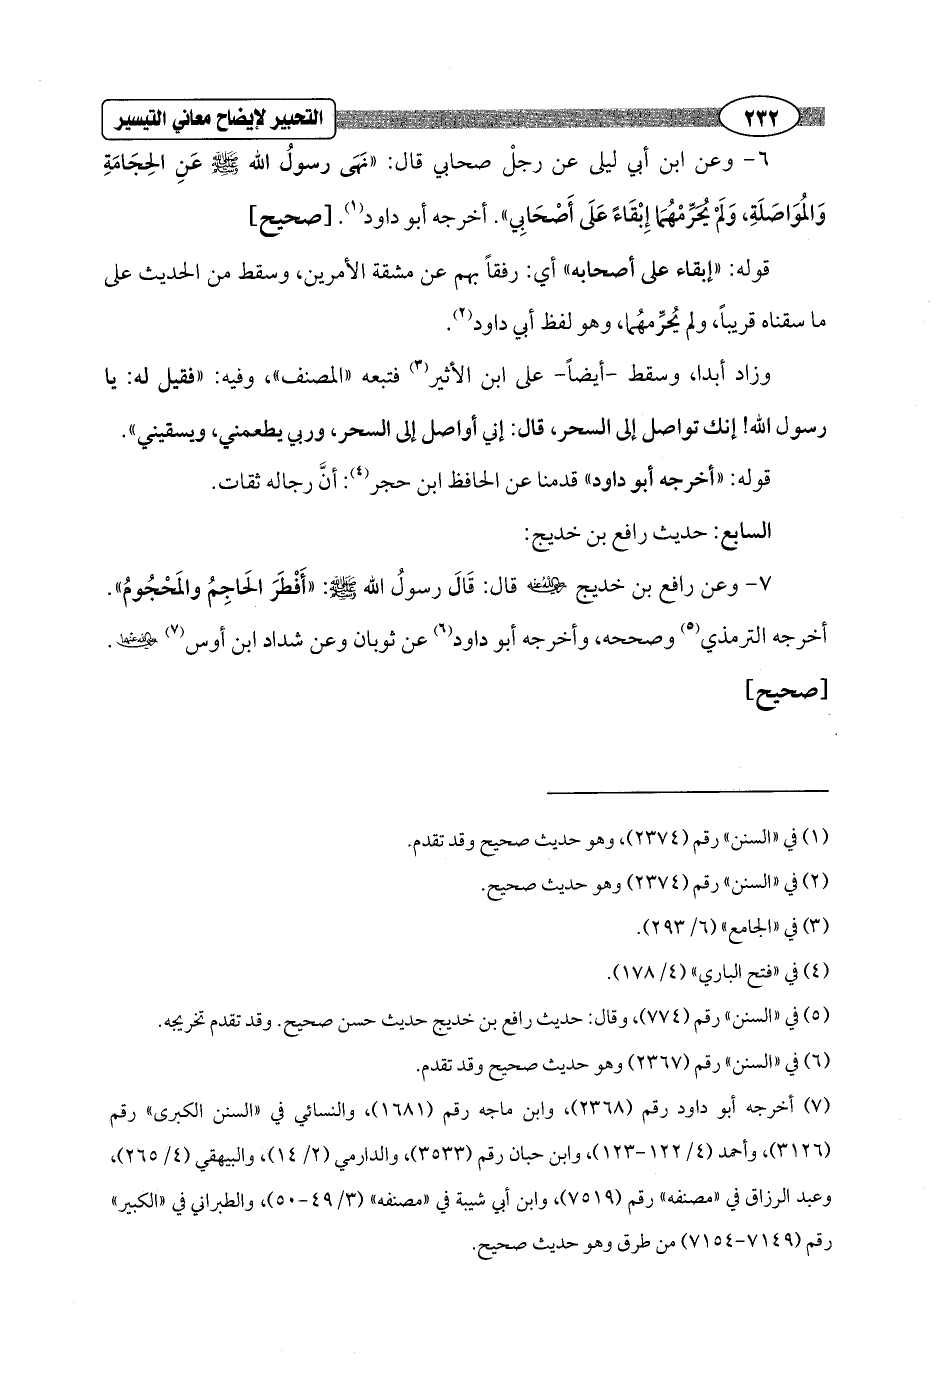 ٢٣٢
التحبير لإيضاح معاني التيسير
٦- وعن ابن أبي ليلى عن رجلْ صحابي قال: «نَهَى رسولُ الله ﷺ عَنِ الحِجَامَةِ
وَالْمُوَاصَلَةِ، وَلَمْ يُحَرِّمْهُمَا إِبْقَاءً عَلَى أَصْحَابِي». أخرجه أبو داود(١). [صحيح]
قوله: «إبقاء على أصحابه» أي: رفقاً بهم عن مشقة الأمرين، وسقط من الحديث على
ما سقناه قريباً، ولم يُحَرِّمهُما، وهو لفظ أبي داود(٢).
وزاد أبدا، وسقط -أيضاً- على ابن الأثير(٣) فتبعه «المصنف»، وفيه: «فقيل له: يا
رسول الله! إنك تواصل إلى السحر، قال: إني أواصل إلى السحر، وربي يطعمني، ويسقيني».
قوله: «أخرجه أبو داود» قدمنا عن الحافظ ابن حجر(٤): أنَّ رجاله ثقات.
السابع: حديث رافع بن خديج:
٧- وعن رافع بن خديج رضي الله عنه قال: قَالَ رسولُ الله ﷺ: «أَفْطَرَ الحَاجِمُ والمَحْجُومُ».
أخرجه الترمذي(٥) وصححه، وأخرجه أبو داود(٦) عن ثوبان وعن شداد ابن أوس(٧) رضي الله عنهما.
[صحيح]
(١) في «السنن» رقم (٢٣٧٤)، وهو حديث صحيح وقد تقدم.
(٢) في «السنن» رقم (٢٣٧٤) وهو حديث صحيح.
(٣) في «الجامع» (٦/ ٢٩٣).
(٤) في «فتح الباري» (٤/ ١٧٨).
(٥) في «السنن» رقم (٧٧٤)، وقال: حديث رافع بن خديج حديث حسن صحيح. وقد تقدم تخريجه.
(٦) في «السنن» رقم (٢٣٦٧) وهو حديث صحيح وقد تقدم.
(٧) أخرجه أبو داود رقم (٢٣٦٨)، وابن ماجه رقم (١٦٨١)، والنسائي في «السنن الكبرى» رقم
(٣١٢٦)، وأحمد (٤/ ١٢٢-١٢٣)، وابن حبان رقم (٣٥٣٣)، والدارمي (٢/ ١٤)، والبيهقي (٤/ ٢٦٥)،
وعبد الرزاق في «مصنفه» رقم (٧٥١٩)، وابن أبي شيبة في «مصنفه» (٣/ ٤٩-٥٠)، والطبراني في «الكبير»
رقم (٧١٤٩-٧١٥٤) من طرق وهو حديث صحيح.